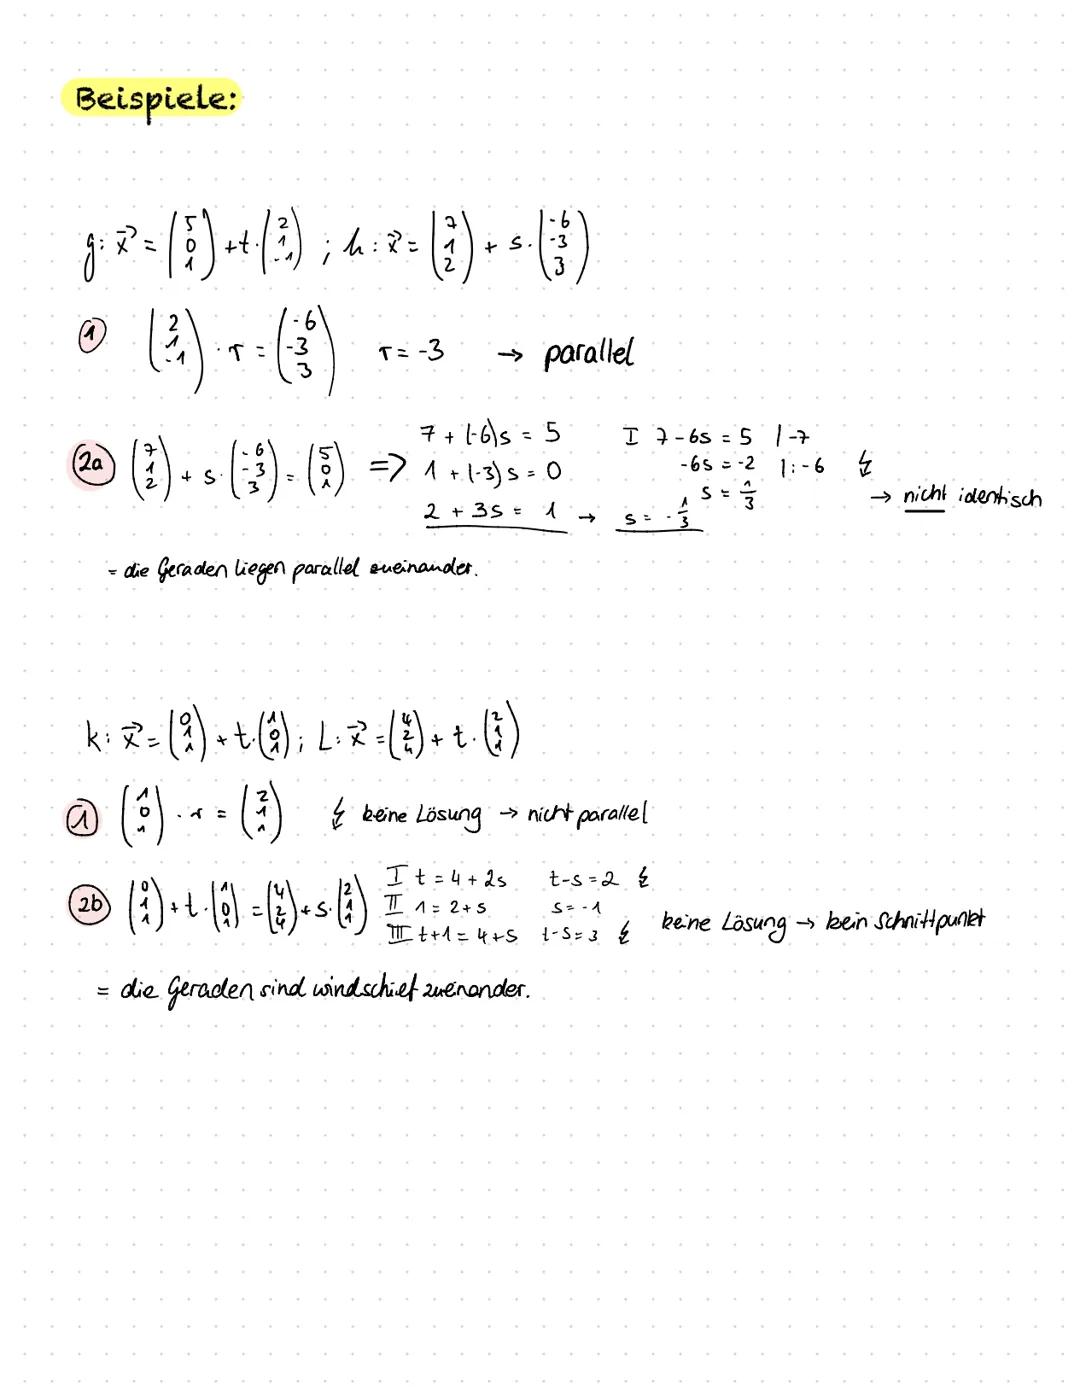 Beispiele:
g: x⃗ = (5 0 1) + t · (2 1 -1) ; h: x⃗ = (7 1 2) + s · (-6 -3 3)
① (2 1 -1) · r = (-6 -3 3) r = -3 → parallel
2a (7 1 2) + s · (-6 -3 3) = (5 0 1) =>
7 + (-6)s = 5
1 + (-3)s = 0
2 + 3s = 1 → s = -1/3
I 7 - 6s = 5 | -7
-6s = -2 | : -6 ↯
s = 1/3 → nicht identisch
= die Geraden liegen parallel zueinander.
k: x⃗ = (0 1 1) + t · (1 0 1) ; L: x⃗ = (4 2 4) + t · (2 1 1)
① (1 0 1) · r = (2 1 1) ↯ keine Lösung → nicht parallel
2b (0 1 1) + t · (1 0 1) = (4 2 4) + s · (2 1 1)
I t = 4 + 2s t - s = 2 ↯
II 1 = 2 + s s = -1
III t + 1 = 4 + s t - s = 3 ↯
keine Lösung → kein Schnittpunkt
= die Geraden sind windschief zueinander.